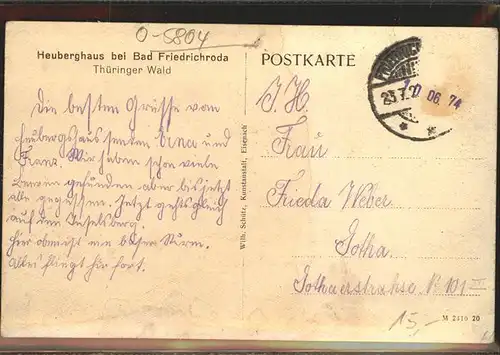 O-5804
Heuberghaus bei Bad Friedrichroda
Thüringer Wald
Die besten Grüsse vom
Heubergshaus senden Erna und
Franz. Wir haben schon viele
Beeren gefunden aber bis jetzt
alle gegessen. Jetzt gehts gleich
auf den Inselsberg.
Hier oben ist ein böser Sturm.
Alles fliegt hier fort.
Wilh. Schütz, Kunstanstalt, Eisenach
POSTKARTE
20 06. 74
I. H.
Frau
Frieda Weber
Gotha.
Gothaerstrahse N 101 III
M 2410 20
15,-